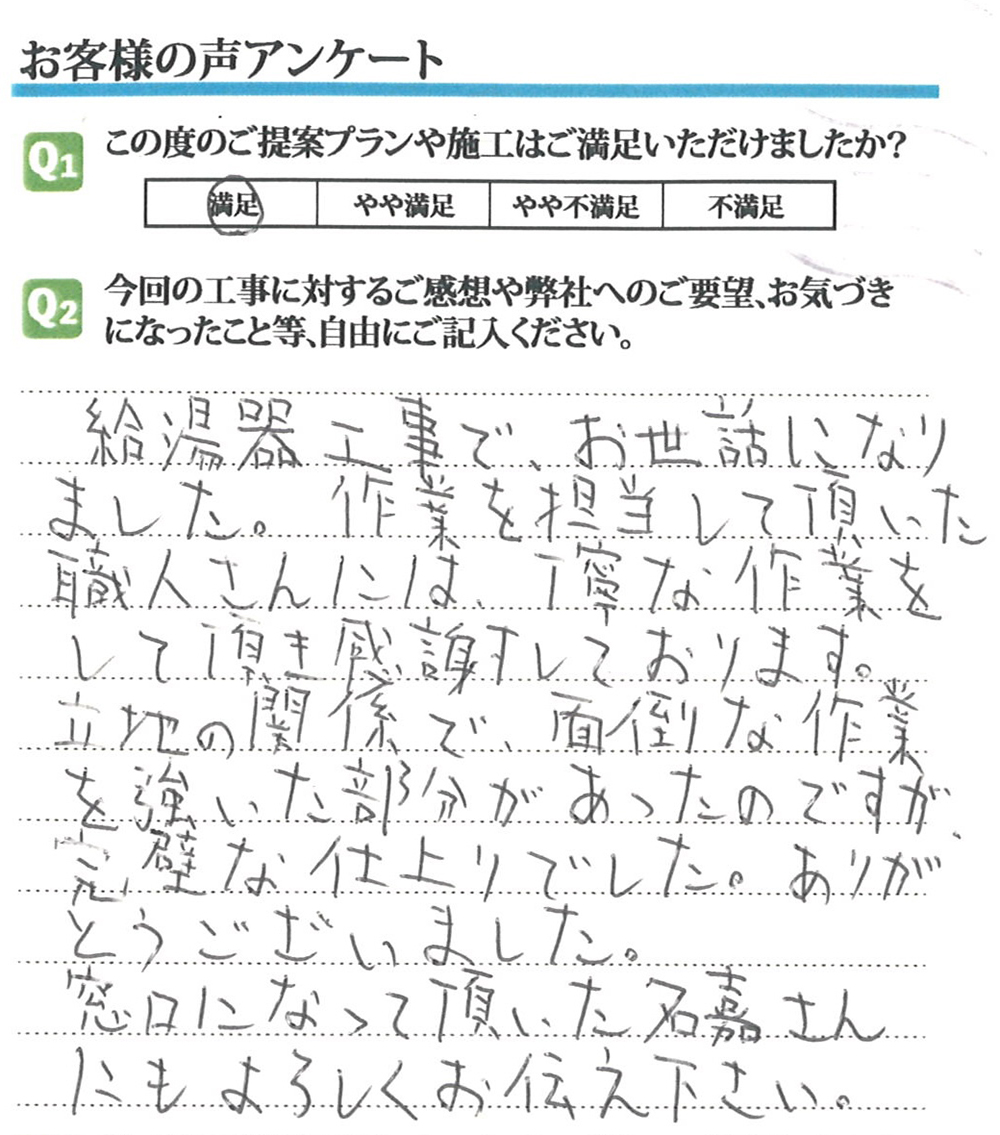 お客様の声アンケート
Q1 この度のご提案プランや施工はご満足いただけましたか?
満足 やや満足 やや不満足 不満足
Q2 今回の工事に対するご感想や弊社へのご要望、お気づき
になったこと等、自由にご記入ください。
給湯器工事で、お世話になり
ました。作業を担当して頂いた
職人さんには、丁寧な作業を
して頂き感謝すしております。
立地の関係で、面倒な作業
を強いた部分があったのですが、
完璧な仕上りでした。ありが
とうございました。
窓口になって頂いた名嘉さん
にもよろしくお伝え下さい。